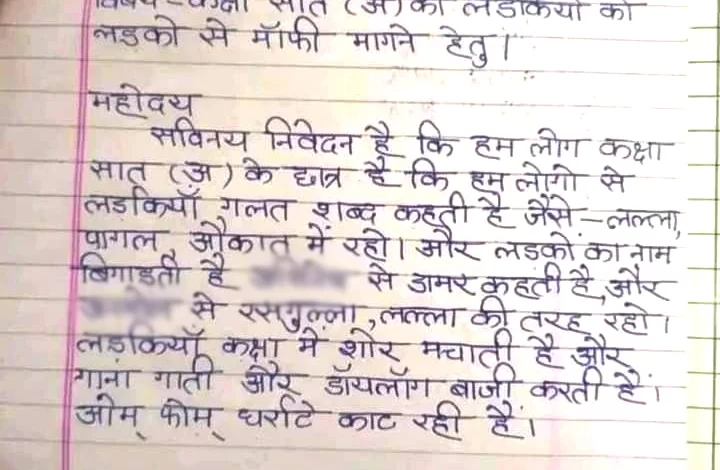 विषय-कक्षा सात (अ) की लडकियों को
लडको से मॉफी मागने हेतु।
महोदय
सविनय निवेदन है कि हम लोग कक्षा
सात (अ) के छात्र है कि हम लोगो से
लडकियाँ गलत शब्द कहती है जैसे-लल्ला,
पागल, औकात में रहो। और लडकों का नाम
बिगाडती है से डामर कहती है, और
से रसगुल्ला, लल्ला की तरह रहो।
लडकियाँ कक्षा में शोर मचाती है और
गाना गाती और डॉयलॉग बाजी करती हैं।
ओम् फोम् धर्राटे काट रही हैं।